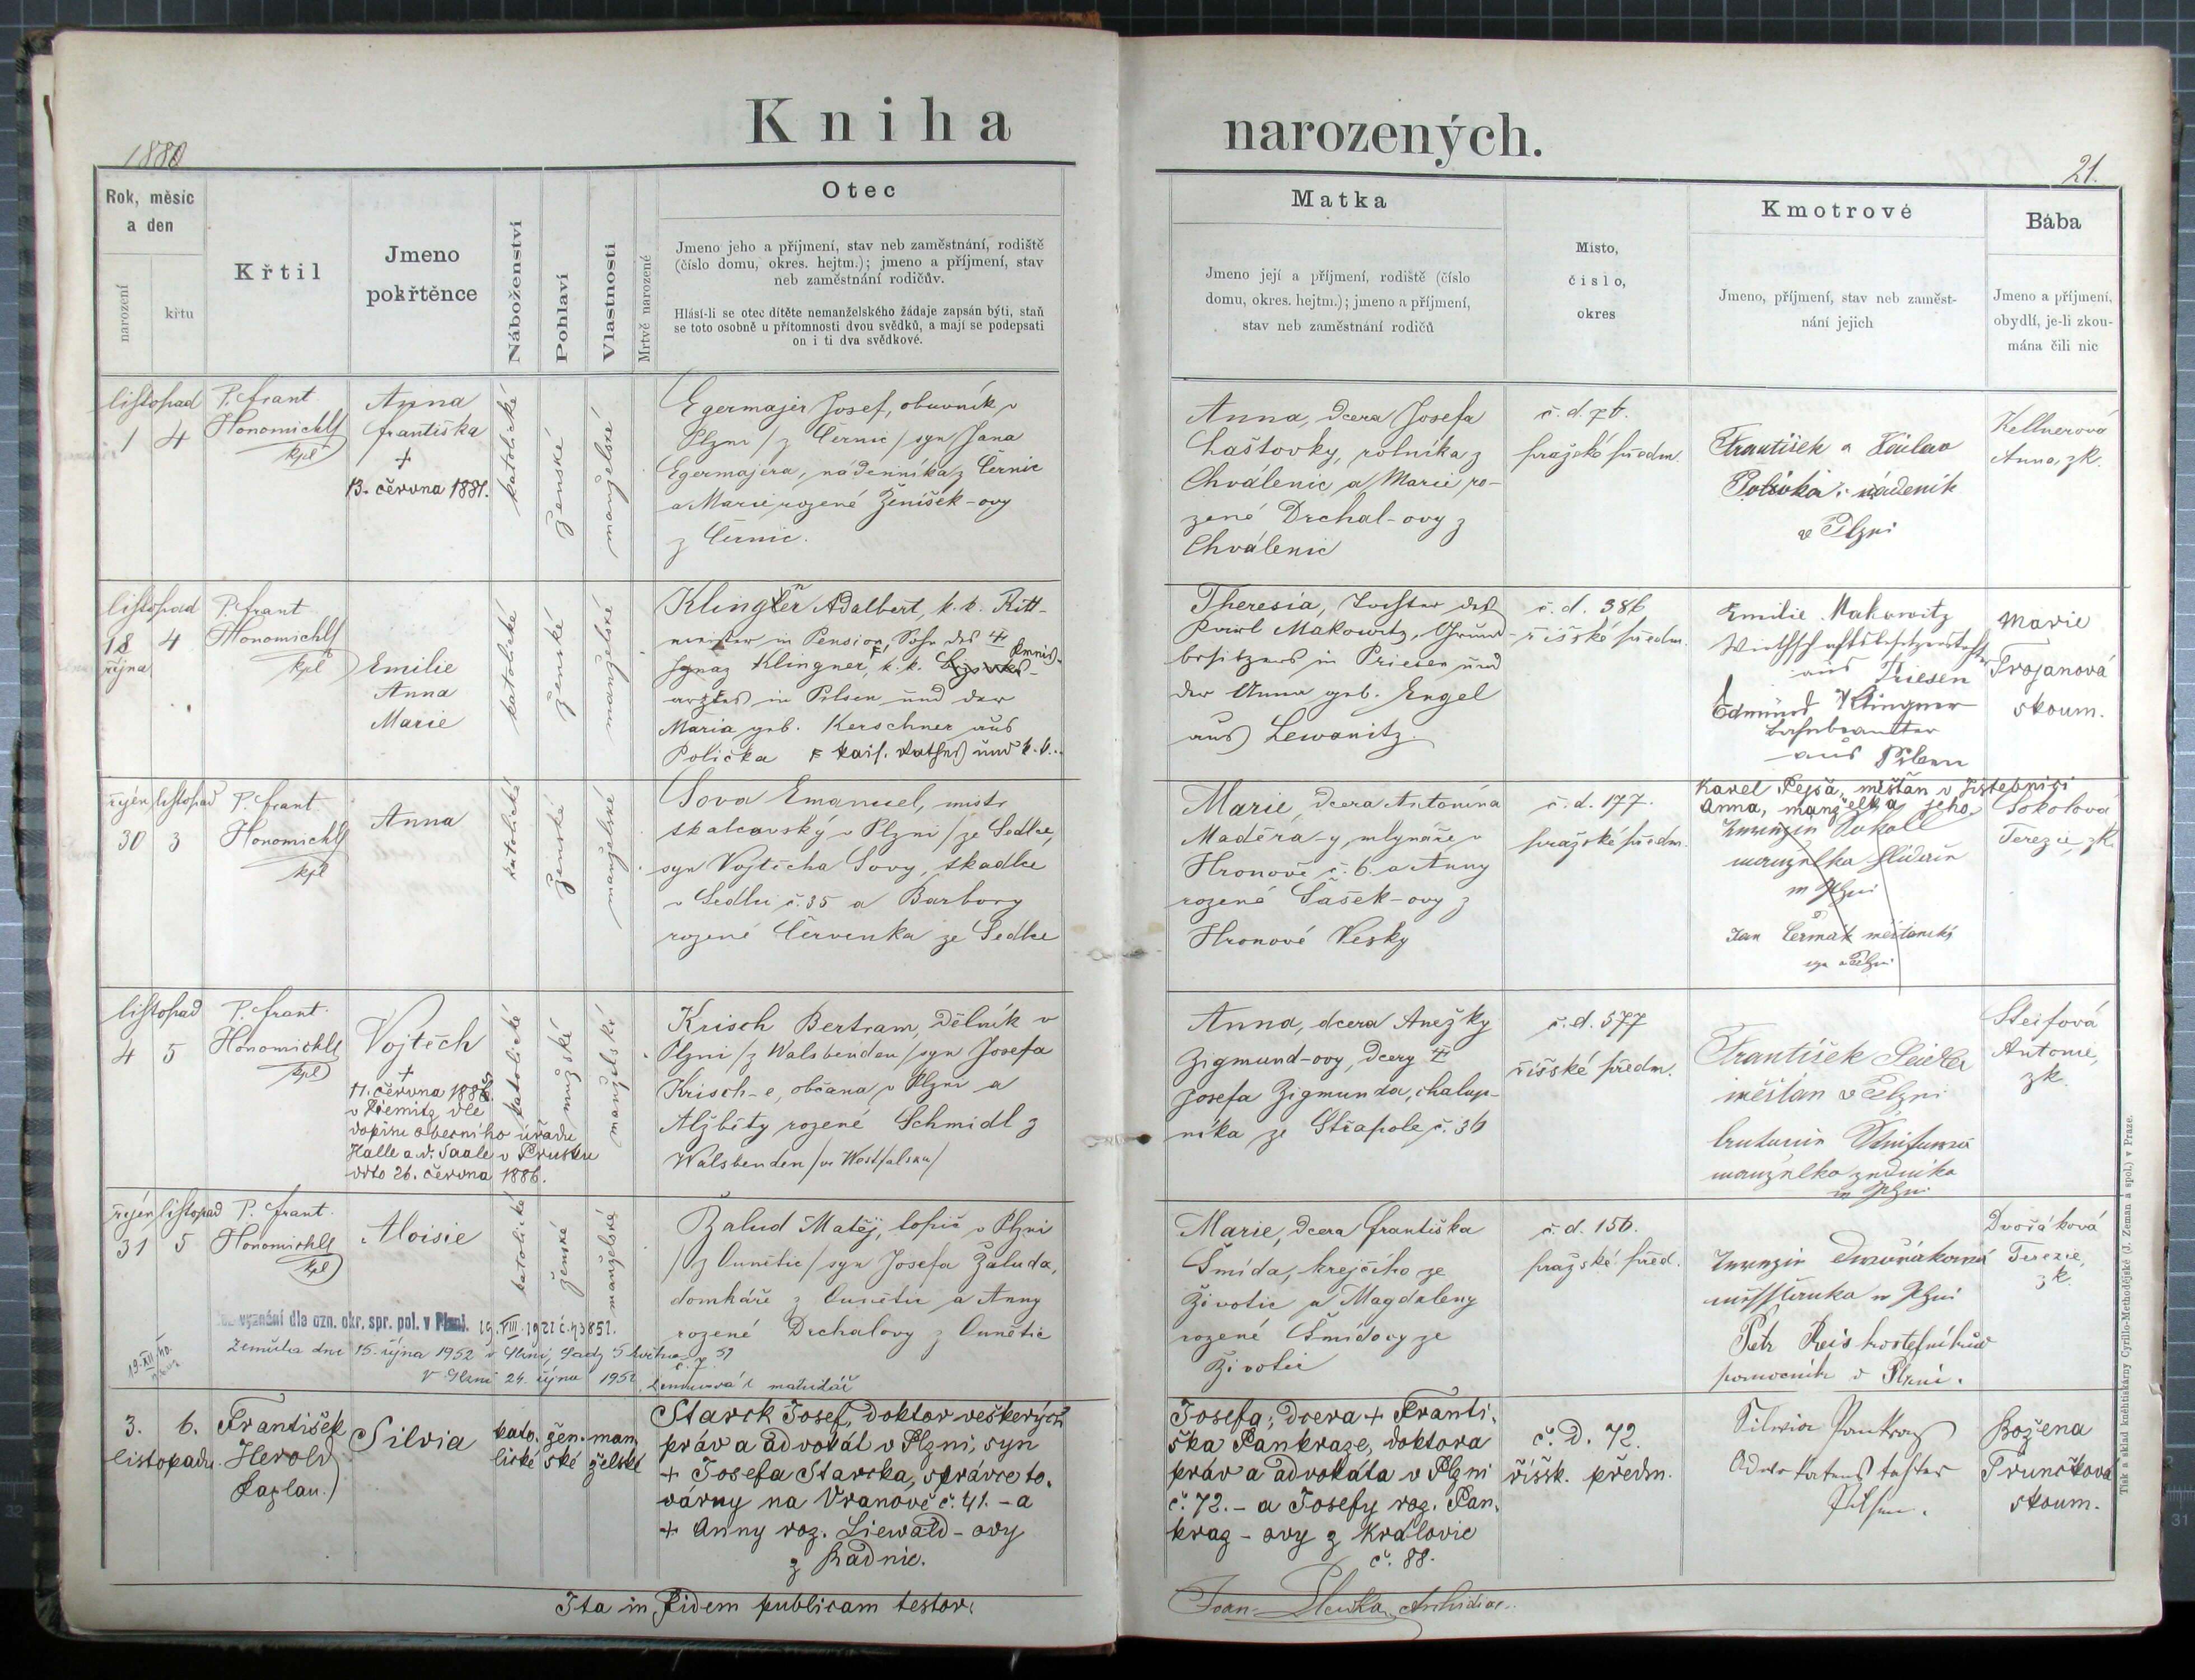 Kniha narozených.
1880
21.
Rok, měsíc
a den
narození
křtu
Křtil
Jmeno
pokřtěnce
Náboženství
Pohlaví
Vlastnosti
Mrtvě narozené
Otec
Jmeno jeho a příjmení, stav neb zaměstnání, rodiště
(číslo domu, okres. hejtm.); jmeno a příjmení, stav
neb zaměstnání rodičův.
Hlásí-li se otec dítěte nemanželského žádaje zapsán býti, staň
se toto osobně u přítomnosti dvou svědků, a mají se podepsati
on i ti dva svědkové.
Matka
Jmeno její a příjmení, rodiště (číslo
domu, okres. hejtm.); jmeno a příjmení,
stav neb zaměstnání rodičů
Místo,
číslo,
okres
Kmotrové
Jmeno, příjmení, stav neb zaměst-
nání jejich
Bába
Jmeno a příjmení,
obydlí, je-li zkou-
mána čili nic
listopad
1 4
P. Frant
Honomichl
kpl
Anna
Františka
+
13. června 1881.
katolické
ženské
manželské
Egermajer Josef, obuvník v
Plzni / z Černic / syn Jana
Egermajera, nádenníka z Černic
a Marie rozené Ženíšek-ovy
z Černic.
Anna, dcera Josefa
Laštovky, rolníka z
Chválenic a Marie ro-
zené Drchal-ovy z
Chválenic
č. d. 76.
pražské předm
František a Václav
Polívka, nádeník
v Plzni
Kellnerová
Anna, zk.
listopad
18 4
října
P. Frant
Honomichl
kpl
Emilie
Anna
Marie
katolické
ženské
manželské
Klingner Adalbert, k. k. Ritt-
meister in Pension, Sohn des
Ignaz Klingner, k. k.
arztes in Pilsen und der
Maria geb. Kerschner aus
Polička kais. Rathes und k. k.
Theresia, Tochter des
Paul Makowitz, Grund-
besitzers in Priesen und
der Anna geb. Engel
aus Lewanitz.
č. d. 386
říšské předm.
Emilie Makowitz
Wirthschaftsbesitzerstochter
aus Priesen
Edmund Klingner
Bahnbeamter
aus Pilsen
Marie
Trojanová
skoum.
říjen listopad
30 3
P. Frant
Honomichl
kpl
Anna
katolické
ženské
manželské
Sova Emanuel, mistr
tkalcovský v Plzni / ze Sedlce,
syn Vojtěcha Sovy, tkadlce
v Sedlci č. 35 a Barbory
rozené Červenka ze Sedlce
Marie, dcera Antonína
Maděra-y, mlynáře v
Hronově č. 6. a Anny
rozené Šašek-ovy z
Hronové Vesky
č. d. 177.
pražské předm.
Karel Pejša, měšťan v Jistebnici
Anna, manželka jeho
Sokoll
manželka
w Plzni
Jan Čermák měšťanský
syn v Plzni
Sokolová
Terezie, zk.
listopad
4 5
P. Frant.
Honomichl
kpl
Vojtěch
+
11. června 1886.
v Diemitz dle
dopisu obecního úřadu
Halle a. d. Saale v Prusku
ddto 26. června 1886.
katolické
mužské
manželské
Krisch Bertram, dělník v
Plzni / z Walsbenden / syn Josefa
Krisch-e, občana v Plzni a
Alžběty rozené Schmidl z
Walsbenden / ve Westfalsku /
Anna, dcera Anežky
Zigmund-ovy, dcery
Josefa Zigmunda, chalup-
níka ze Střapole č. 36
č. d. 577
říšské předm.
František Seidler
měšťan v Plzni
manželka
w Plzni
Steifová
Antonie,
zk.
říjen listopad
31 5
P. Frant.
Honomichl
kpl
Aloisie
katolické
ženské
manželské
Žalud Matěj, topič v Plzni
/ z Cunětic / syn Josefa Žaluda,
domkáře z Cunětic a Anny
rozené Drchalovy z Cunětic
vyznání dla ozn. okr. spr. pol. v Plzni. 19. VIII. 1921 č. 73851.
Zemřela dne 15. října 1952 v Plzni, Sady 5. května č. 7. 51
V Plzni 24. října 1952 matrikář
Marie, dcera Františka
Šmída, krejčího ze
Životic a Magdaleny
rozené Šmídovy ze
Životic
č. d. 156.
pražské před.
Dwořáková
w Plzni
Petr Reis
pomocník v Plzni.
Dvořáková
Terezie,
zk.
3. 6.
listopadu.
František
Herold
kaplan.
Silvia
kato-
lické
žen-
ské
man-
želské
Starck Josef, doktor veškerých
práv a advokát v Plzni, syn
+ Josefa Starcka, správce to-
várny na Vranově č. 41. - a
+ Anny roz. Liewald-ovy
z Radnic.
Josefa; dcera + Franti-
ška Pankraze, doktora
práv a advokáta v Plzni
č. 72. - a Josefy roz. Pan-
kraz-ovy z Kralovic
č. 88.
č. D. 72.
říšsk. předm.
Silvia Pankraz
Advokatens tochter
Pilsen.
Božena
Trunčková
skoum.
Ita in fidem publicam testor.
Joan. Archidiac.
Tisk a sklad knihtiskárny Cyrillo-Methodějské (J. Zeman a spol.) v Praze.
32
31